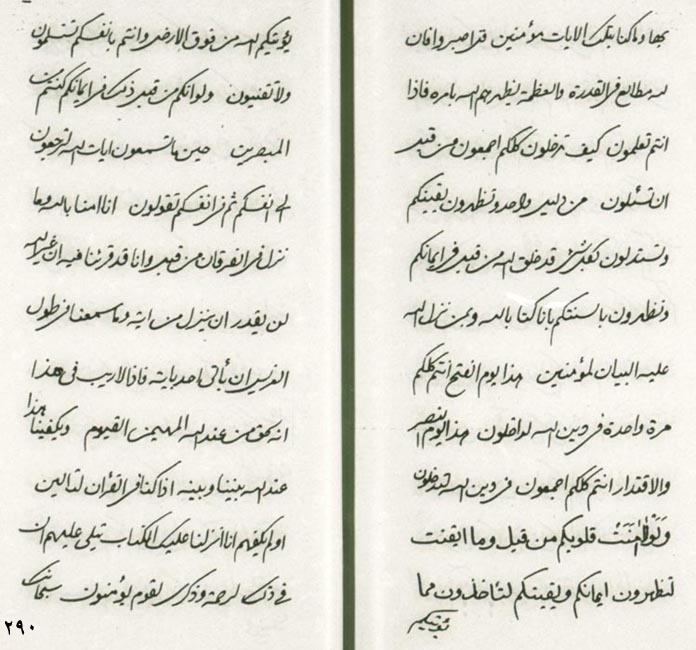 بها وما كنا بتلك الايات مؤمنين قد اصبر وافان
لله مطالع في القدرة والعظمة يظهرهم الله بامره فاذا
انتم تعلمون كيف تدخلون كلكم اجمعون من قبل
ان تسئلون من دليل واحد وتظهرون يقينكم
وتستدلون كل شئ قد خلق الله من قبل في ايمانكم
وتظهرون بالسنتكم بانا كنا بالله وبمن نزل الله
عليه البيان لمؤمنين هذا يوم الفتح انتم كلكم
مرة واحدة في دين الله لداخلون هذا يوم النصر
والاقتدار انتم كلكم اجمعون في دين الله لتدخلون
ولولا امنت قلوبكم من قبل وما ايقنت
لتظهرون ايمانكم ويقينكم لتأخذون مما
يؤتيكم الله من فوق الارض وانتم بانفسكم تسلمون
ولا تفنيون ولو انكم من قبل ذلك في ايمانكم كنتم من
المبصرين حين ما تسمعون ايات الله لترجعون
الى انفسكم ثم في انفسكم تقولون انا امنا بالله وما
نزل في الفرقان من قبل وانا قد قرئنا فيه ان غير الله
لن يقدر ان ينزل من اية وما سمعنا في طول
الفرس ان يأتي احد باية فاذا لا ريب في هذا
انه لحق من عند الله المهيمن القيوم ويكفينا هذا
عند الله بيننا وبينه اذا كنا في القرأن لتالين
اولم يكفهم انا انزلنا عليك الكتاب يتلى عليهم ان
في ذلك لرحمة وذكرى لقوم يؤمنون سبحانك
٢٩٠